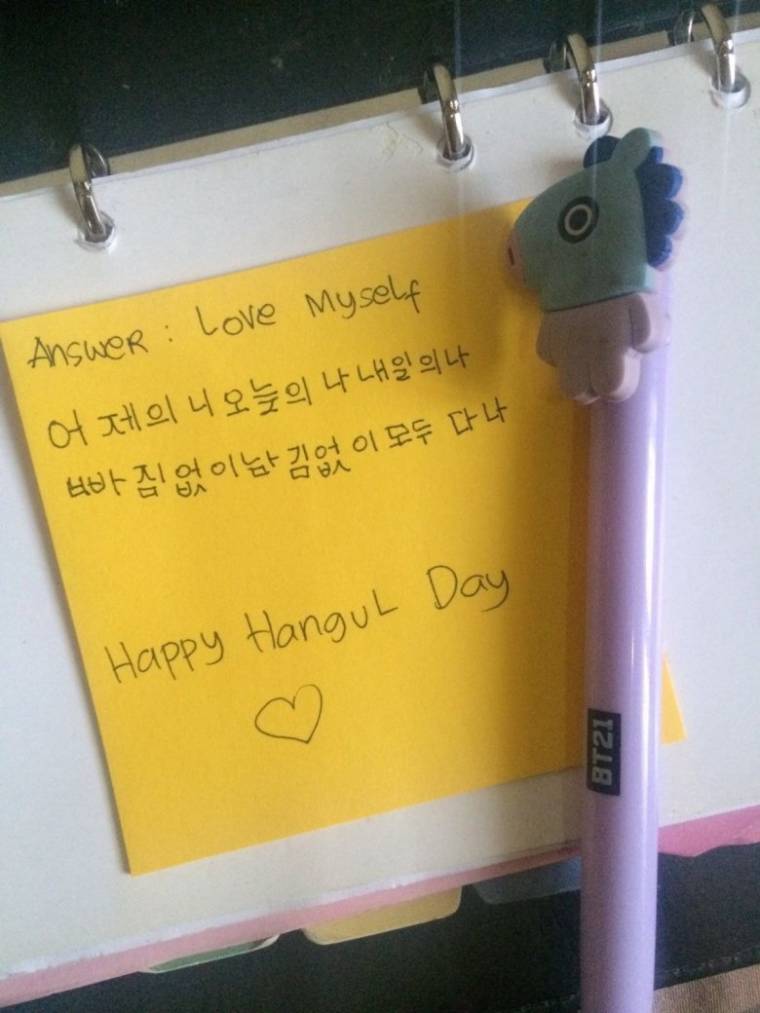 Answer : Love Myself
어제의 니 오늦의 나 내일의 나
빠짐없이 남김없이 모두 다 나
Happy Hangul Day
BT21